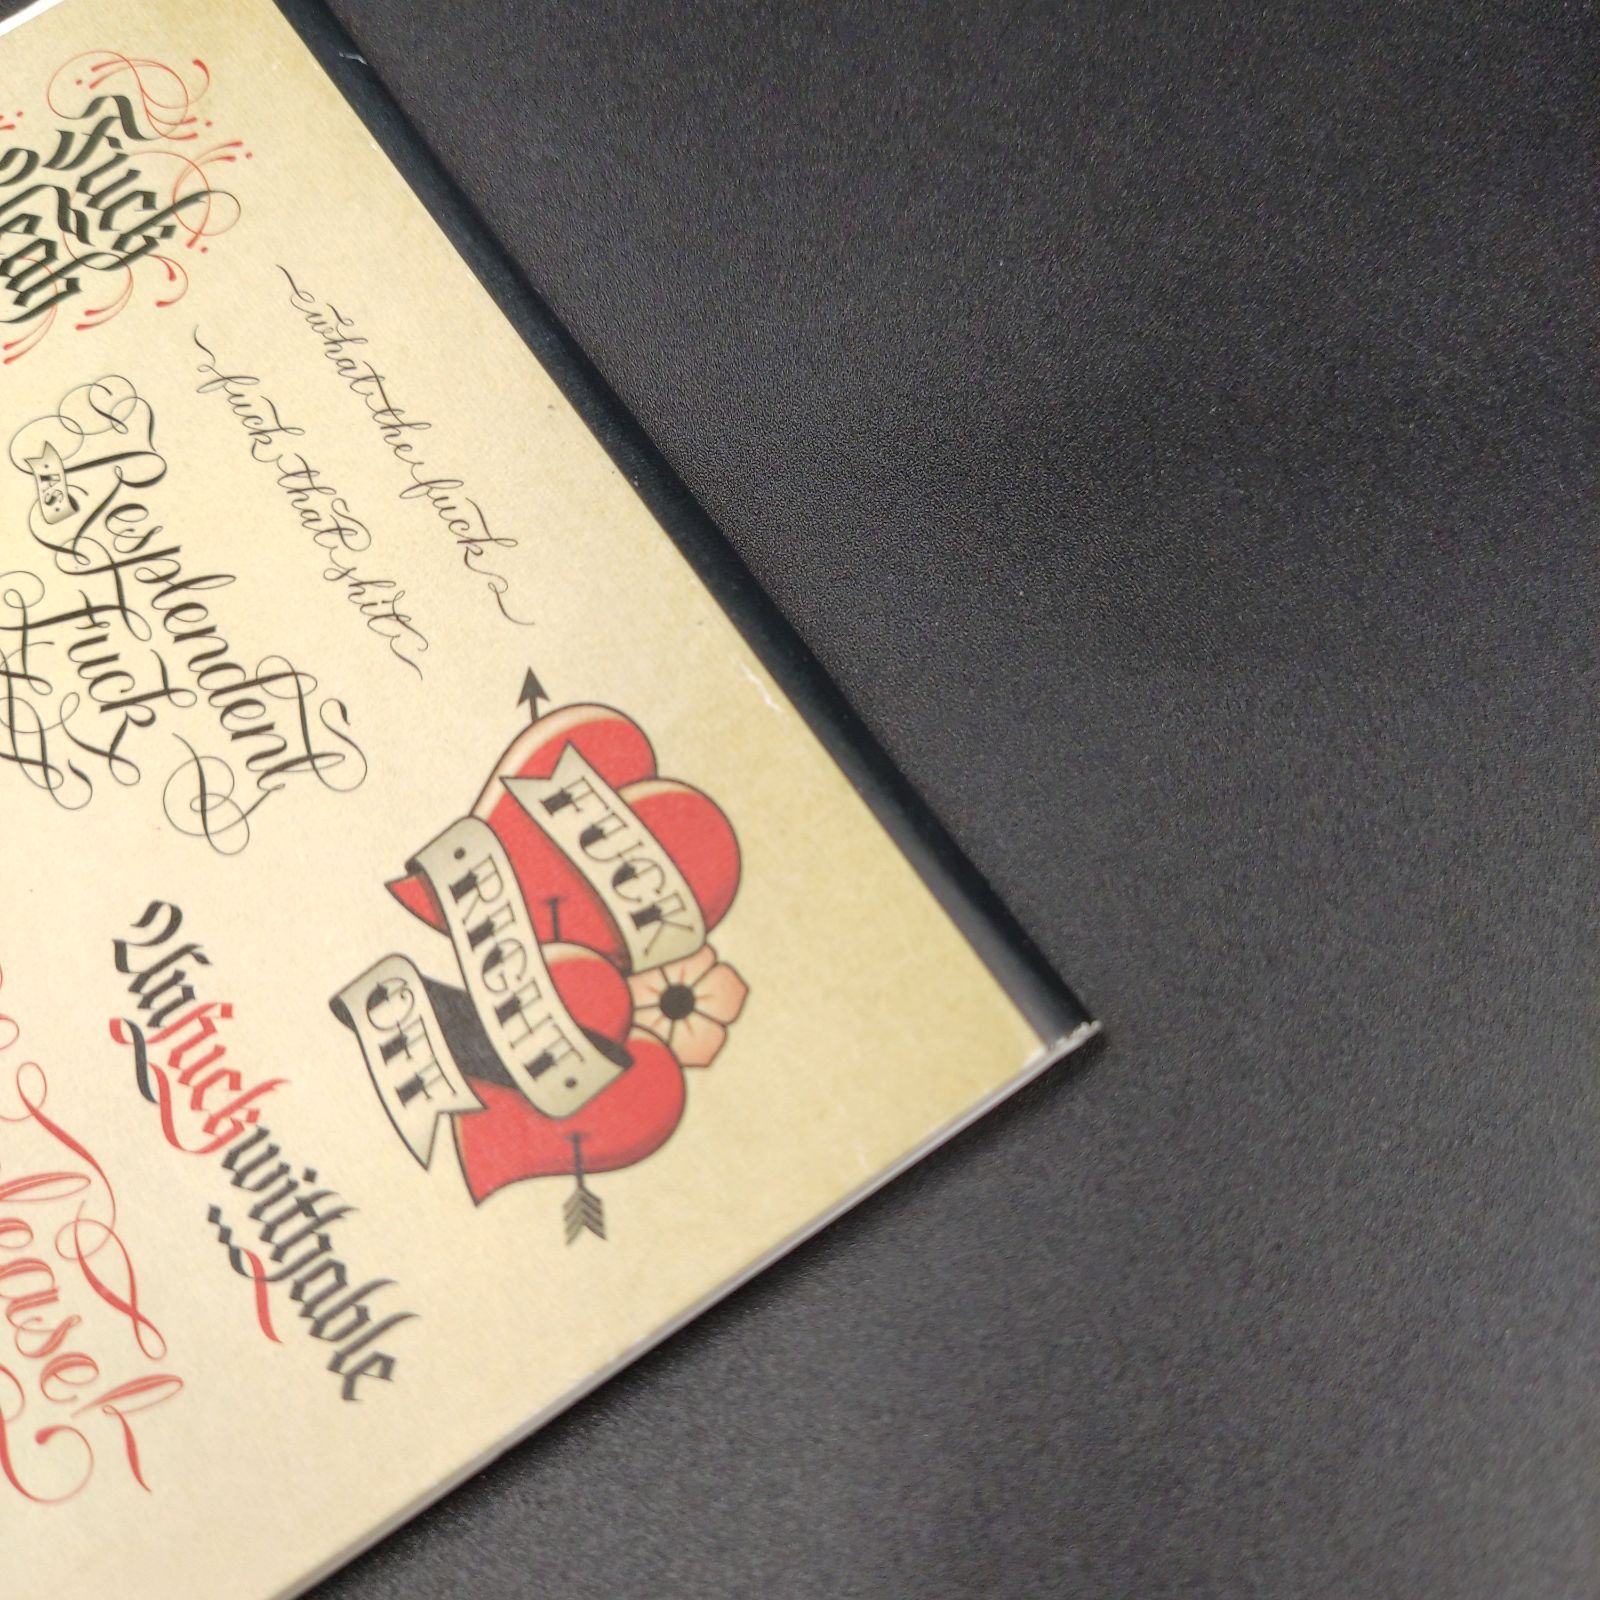 Fuck
what the fuck
fuck that shit
Resplendent
AS
Fuck
FUCK
RIGHT
OFF
Unfuckwithable